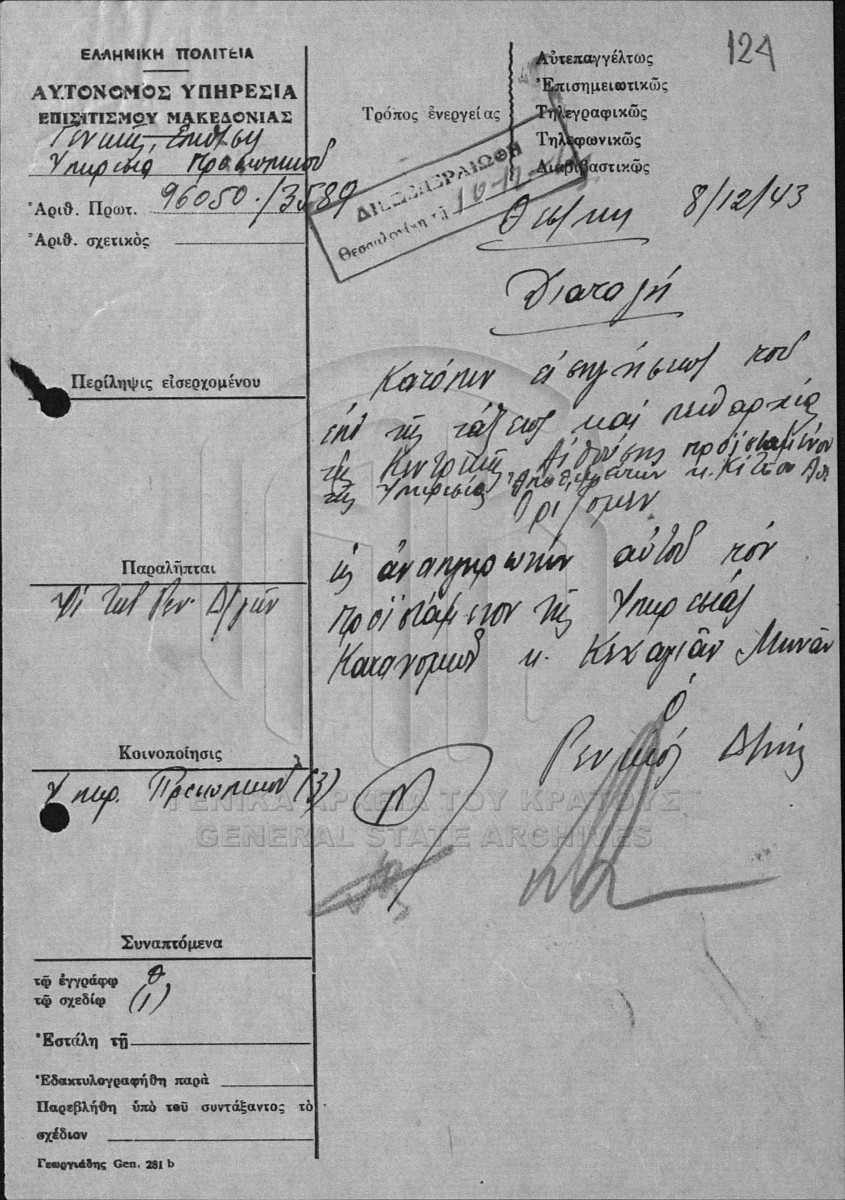 124
ΕΛΛΗΝΙΚΗ ΠΟΛΙΤΕΙΑ
ΑΥΤΟΝΟΜΟΣ ΥΠΗΡΕΣΙΑ
ΕΠΙΣΙΤΙΣΜΟΥ ΜΑΚΕΔΟΝΙΑΣ
Υπηρεσία Προσωπικού
Ἀριθ. Πρωτ. 96050./3589
Ἀριθ. σχετικὸς
Τρόπος ἐνεργείας
Αὐτεπαγγέλτως
Ἐπισημειωτικῶς
Τηλεγραφικῶς
Τηλεφωνικῶς
Διαβιβαστικῶς
ΔΙΕΚΠΕΡΑΙΩΘΗ
Θεσσαλονίκη τῇ 10-12-43
Θεσ/νίκη 8/12/43
Διαταγή
Περίληψις εἰσερχομένου
Κατόπιν εἰσηγήσεως τοῦ
ἐπὶ τῆς τάξεως καὶ πειθαρχίας
τῆς Κεντρικῆς Αἰθούσης προϊσταμένου
τῆς Υπηρεσίας κ. Κίτσου
Ὁρίζομεν
ὡς ἀναπληρωτὴν αὐτοῦ τὸν
προϊστάμενον τῆς Υπηρεσίας
Κατανομῶν κ. Κεχαγιᾶν Μηνᾶν
Παραλῆπται
Ὁ
Γενικός Δ/ντής
Κοινοποίησις
Υπηρ. Προσωπικού (3)
ΓΕΝΙΚΑ ΑΡΧΕΙΑ ΤΟΥ ΚΡΑΤΟΥΣ
GENERAL STATE ARCHIVES
Συναπτόμενα
τῷ ἐγγράφῳ
τῷ σχεδίῳ (1)
Ἐστάλη τῇ
Ἐδακτυλογραφήθη παρὰ
Παρεβλήθη ὑπὸ τοῦ συντάξαντος τὸ
σχέδιον
Γεωργιάδης Gen. 281 b